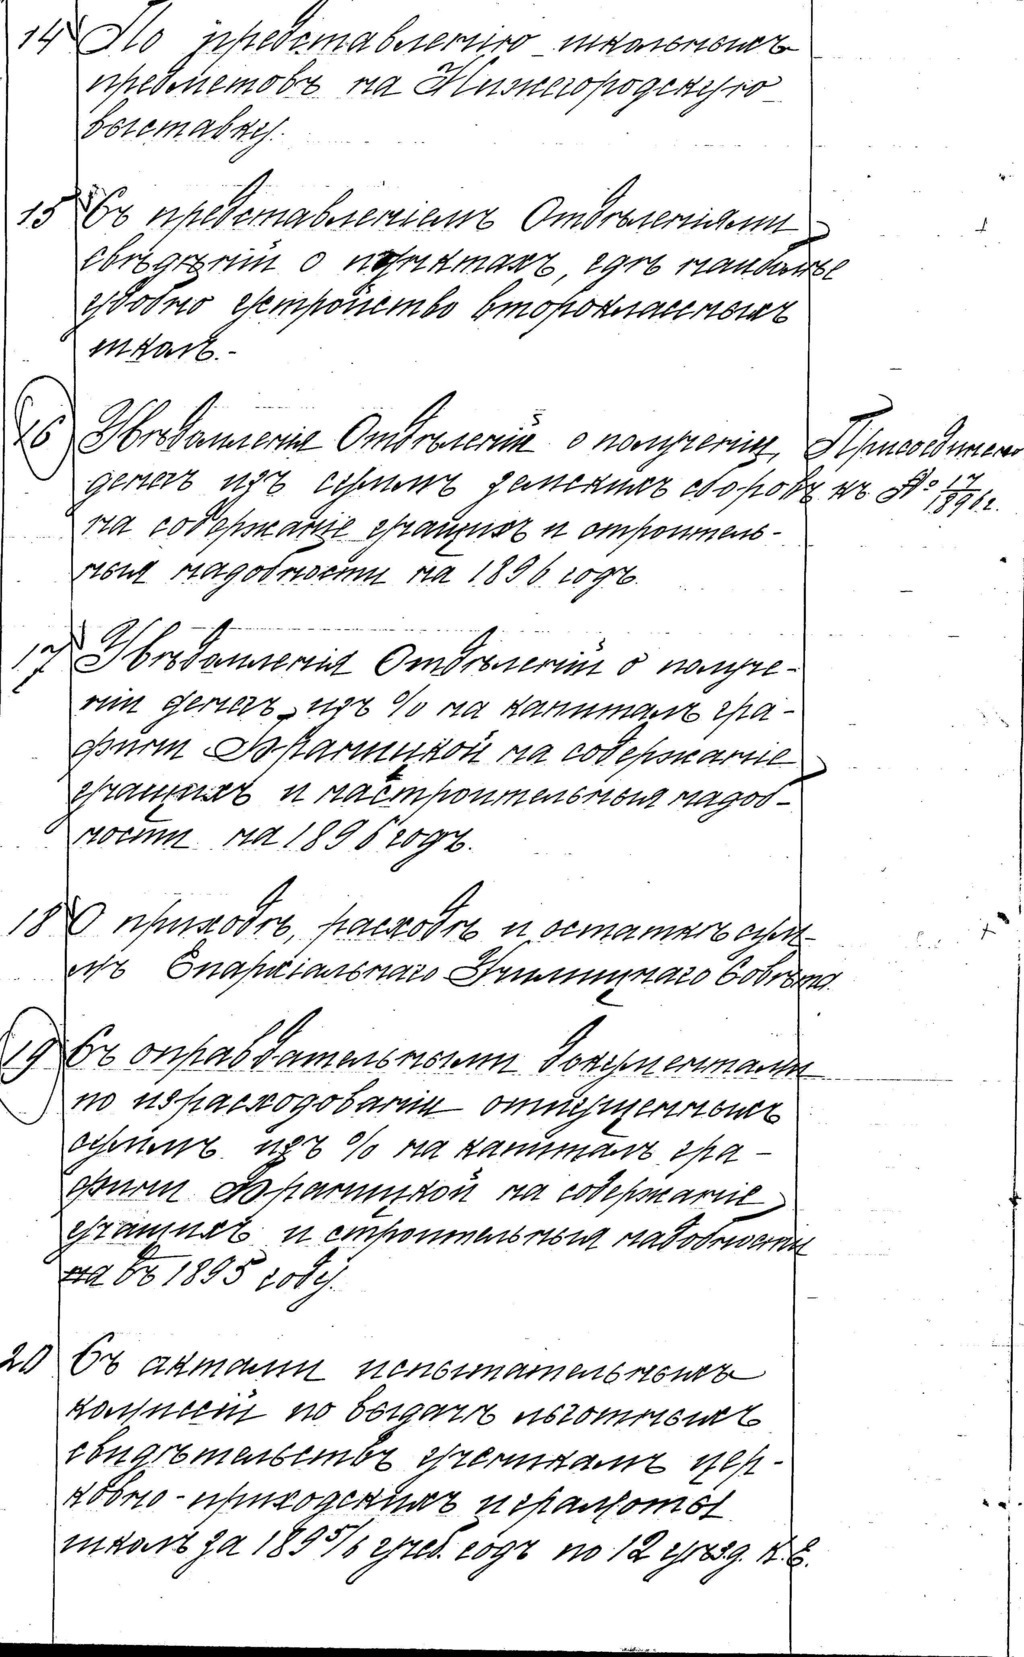 14 По представленію школьныхъ
предметовъ на Нижегородскую
выставку.
15 Съ представленіемъ Отдѣленіями
свѣдѣній о пунктахъ, гдѣ наиболѣе
удобно устройство второклассныхъ
школъ.-
16 Увѣдомленія Отдѣленій о полученіи
денегъ изъ суммъ земскихъ сборовъ
на содержаніе учащихъ и строитель-
ныя надобности на 1896 годъ.
Присоединено
къ № 17/1896 г.
17 Увѣдомленія Отдѣленій о получе-
ніи денегъ изъ % на капиталъ гра-
фини Браницкой на содержаніе
учащихъ и на строительныя надоб-
ности на 1896 годъ.
18 О приходѣ, расходѣ и остаткѣ сум-
мъ Епархіальнаго Училищнаго Совѣта
19 Съ оправдательными документами
по израсходованіи отпущенныхъ
суммъ изъ % на капиталъ гра-
фини Браницкой на содержаніе
учащихъ и строительныя надобности
на въ 1895 году.
20 Съ актами испытательныхъ
коммиссій по выдачѣ льготныхъ
свидѣтельствъ ученикамъ цер-
ковно-приходскихъ и грамоты
школъ за 1895/6 учеб. годъ по 12 уѣзд. К. Е.